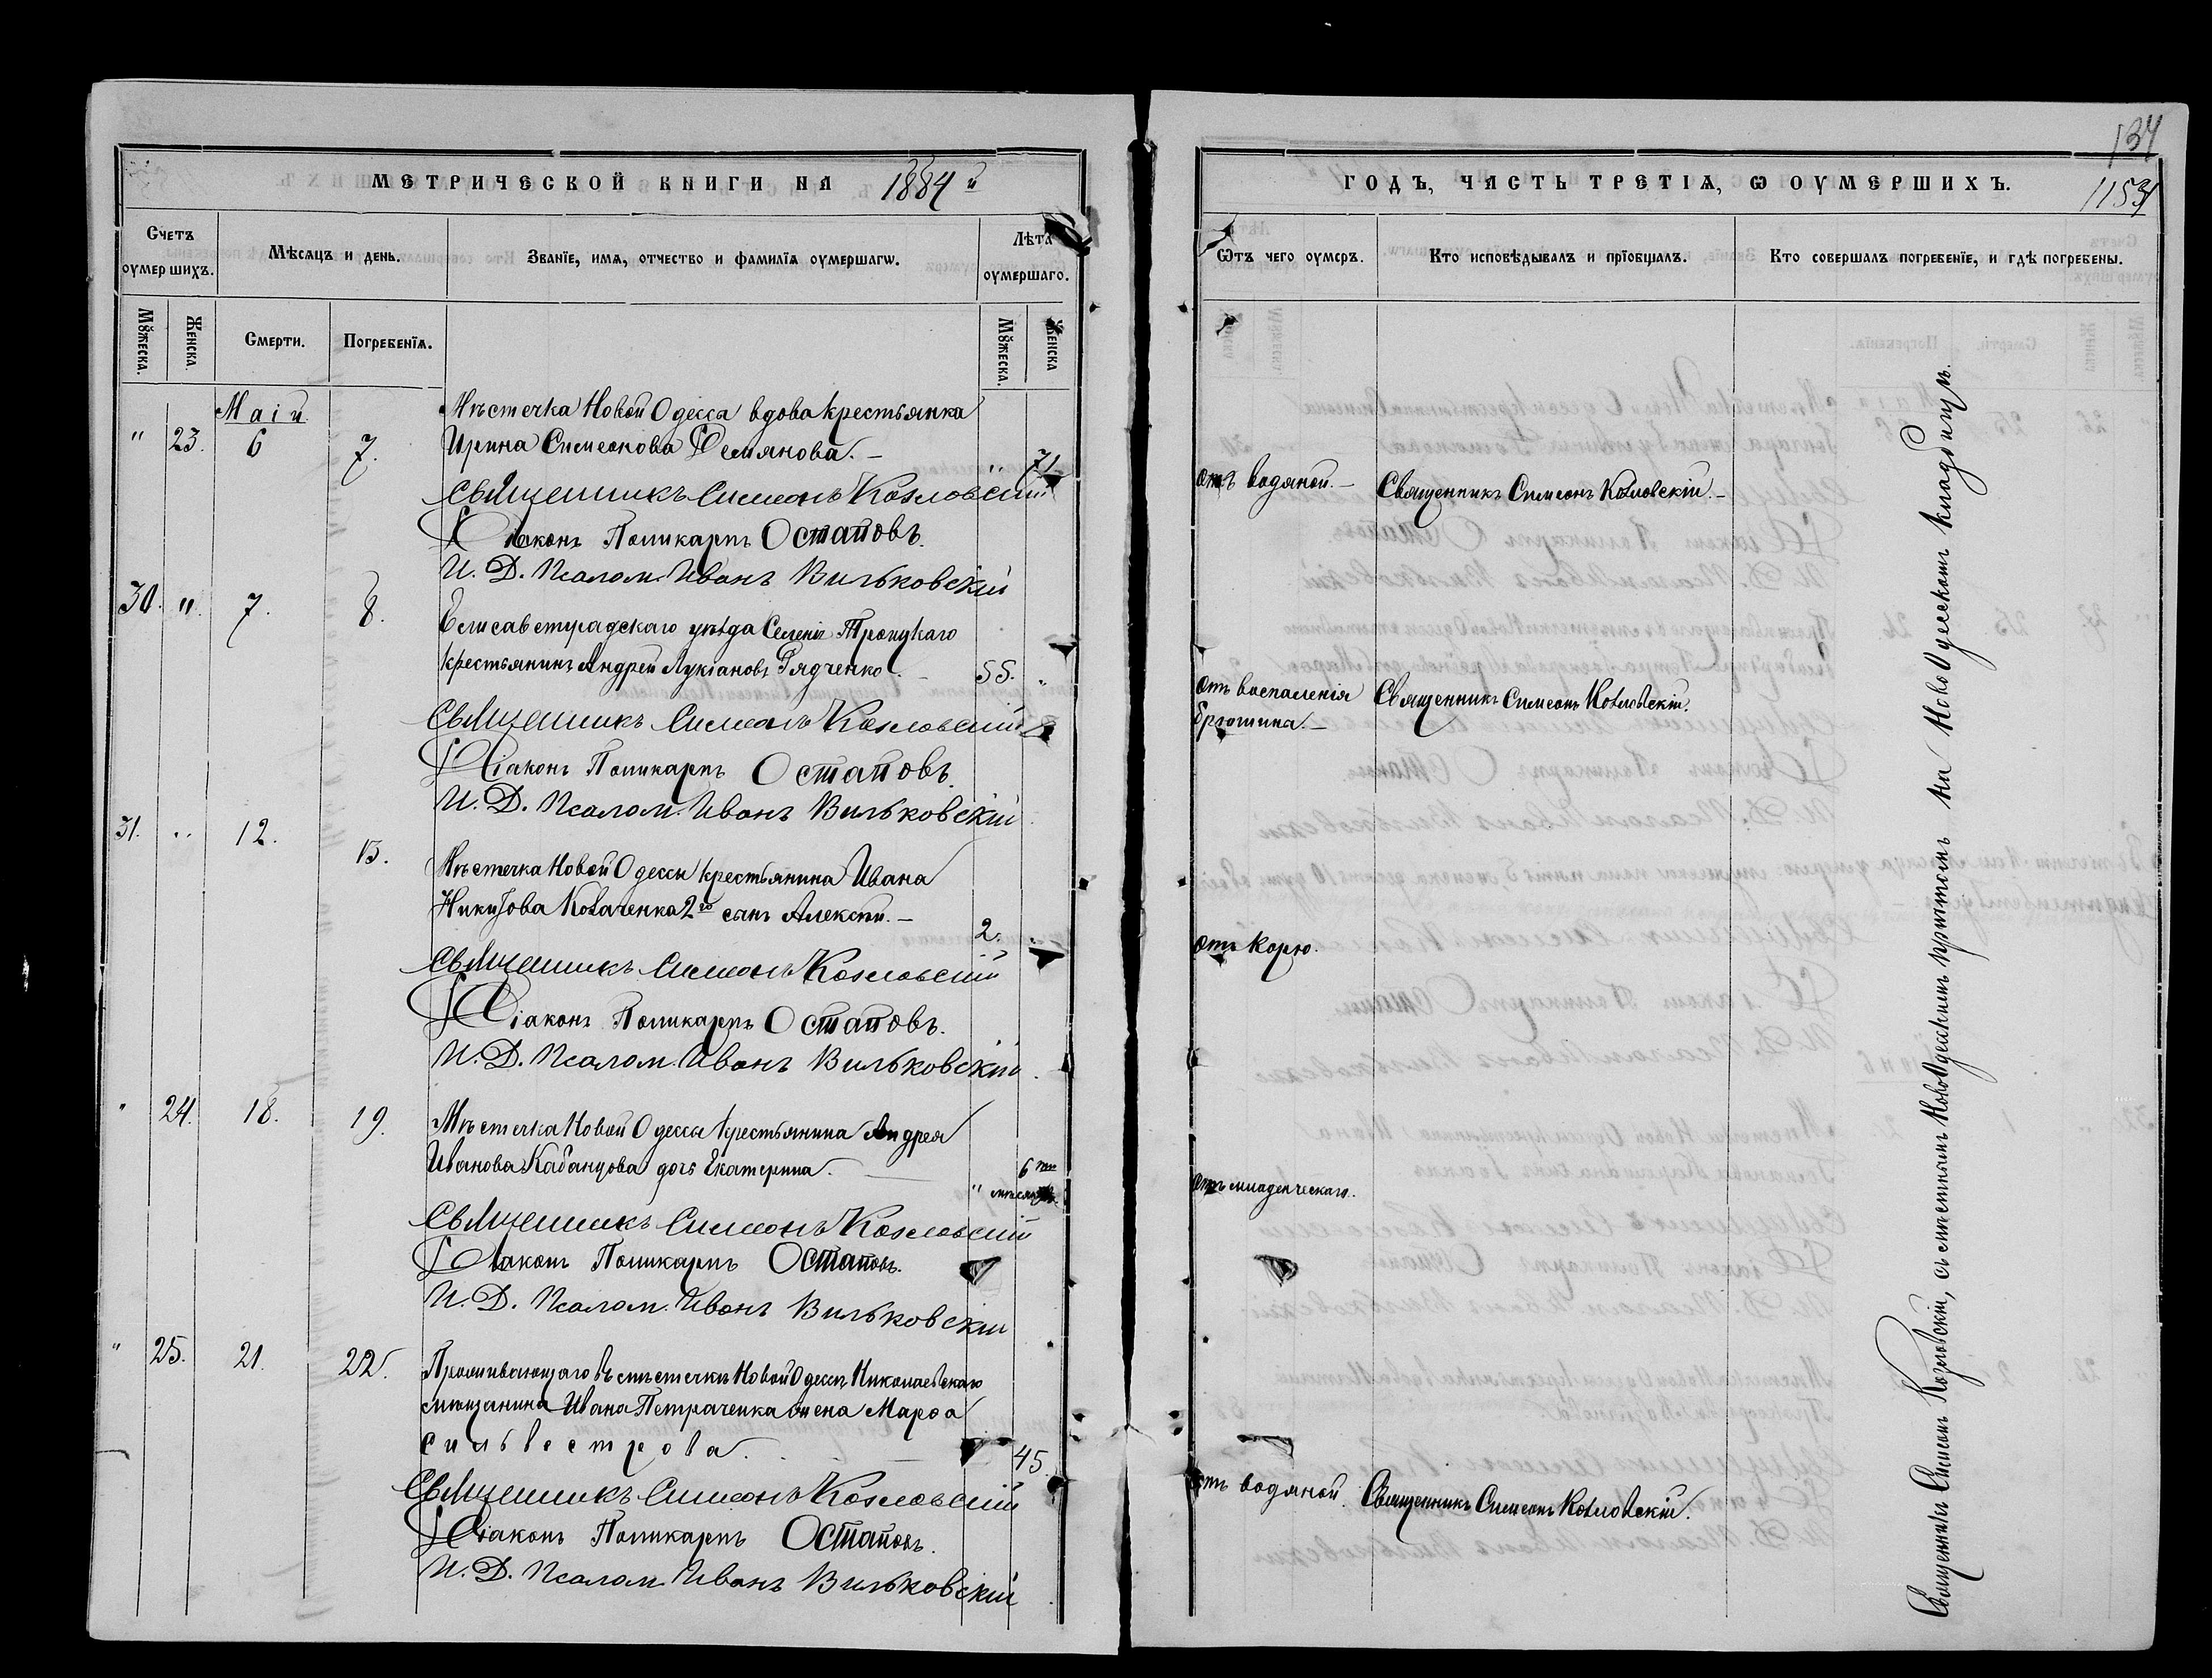 МЕТРИЧЕСКОЙ КНИГИ НА 1884 й
Счетъ оумершихъ.
Мѣсяцъ и день.
Званїе, имя, отчество и фамилїя оумершагѡ.
Лѣта оумершаго.
Мꙋжеска.
Женска.
Смерти.
Погребенїя.
Мꙋжеска.
Женска
Маій
" 23. 6 7.
Мѣстечка Новой Одесса вдова крестьянка
Ирина Симеонова Демянова. — 71
Священникъ Симеонъ Козловскій
Діаконъ Поликарпъ Остаповъ.
И. Д. Псалом. Иванъ Вильковскій
30. " 7. 8.
Елисаветградскаго уѣзда Селенія Троицкаго
крестьянинъ Андрей Лукіановъ Гядченко. — 55. "
Священникъ Симеонъ Козловскій
Діаконъ Поликарпъ Остаповъ.
И. Д. Псалом. Иванъ Вильковскій
31. " 12. 13.
Мѣстечка Новой Одессы крестьянина Ивана
Никитова Коваченка 2го сынъ Алексѣй. — 2. "
Священникъ Симеонъ Козловскій
Діаконъ Поликарпъ Остаповъ.
И. Д. Псалом. Иванъ Вильковскій
" 24. 18. 19.
Мѣстечка Новой Одессы крестьянина Андрея
Иванова Кабанцова дочь Екатерина. — " 6ти мѣсяцъ.
Священникъ Симеонъ Козловскій
Діаконъ Поликарпъ Остаповъ.
И. Д. Псалом. Иванъ Вильковскій
" 25. 21. 22.
Проживающаго въ мѣстечкѣ Новой Одессѣ Николаевскаго
мѣщанина Ивана Петраченка жена Марѳа
Сильвестрова. — 45.
Священникъ Симеонъ Козловскій
Діаконъ Поликарпъ Остаповъ.
И. Д. Псалом. Иванъ Вильковскій
134
ГОДЪ, ЧАСТЬ ТРЕТІЯ, Ѡ ОУМЕРШИХЪ.
1153
Ѿтъ чего оумеръ.
Кто исповѣдывалъ и прїобщалъ.
Кто совершалъ погребенїе, и гдѣ погребены.
отъ водяной. — Священникъ Симеонъ Козловскій. —
отъ воспаленія Священникъ Симеонъ Козловскій.
брюшина. —
отъ корю.
отъ младенческаго.
отъ водяной. Священникъ Симеонъ Козловскій.
Священникъ Симеонъ Козловскій, съ мѣстнымъ Новоодесскимъ причтомъ на Новоодесскомъ кладбищѣ.